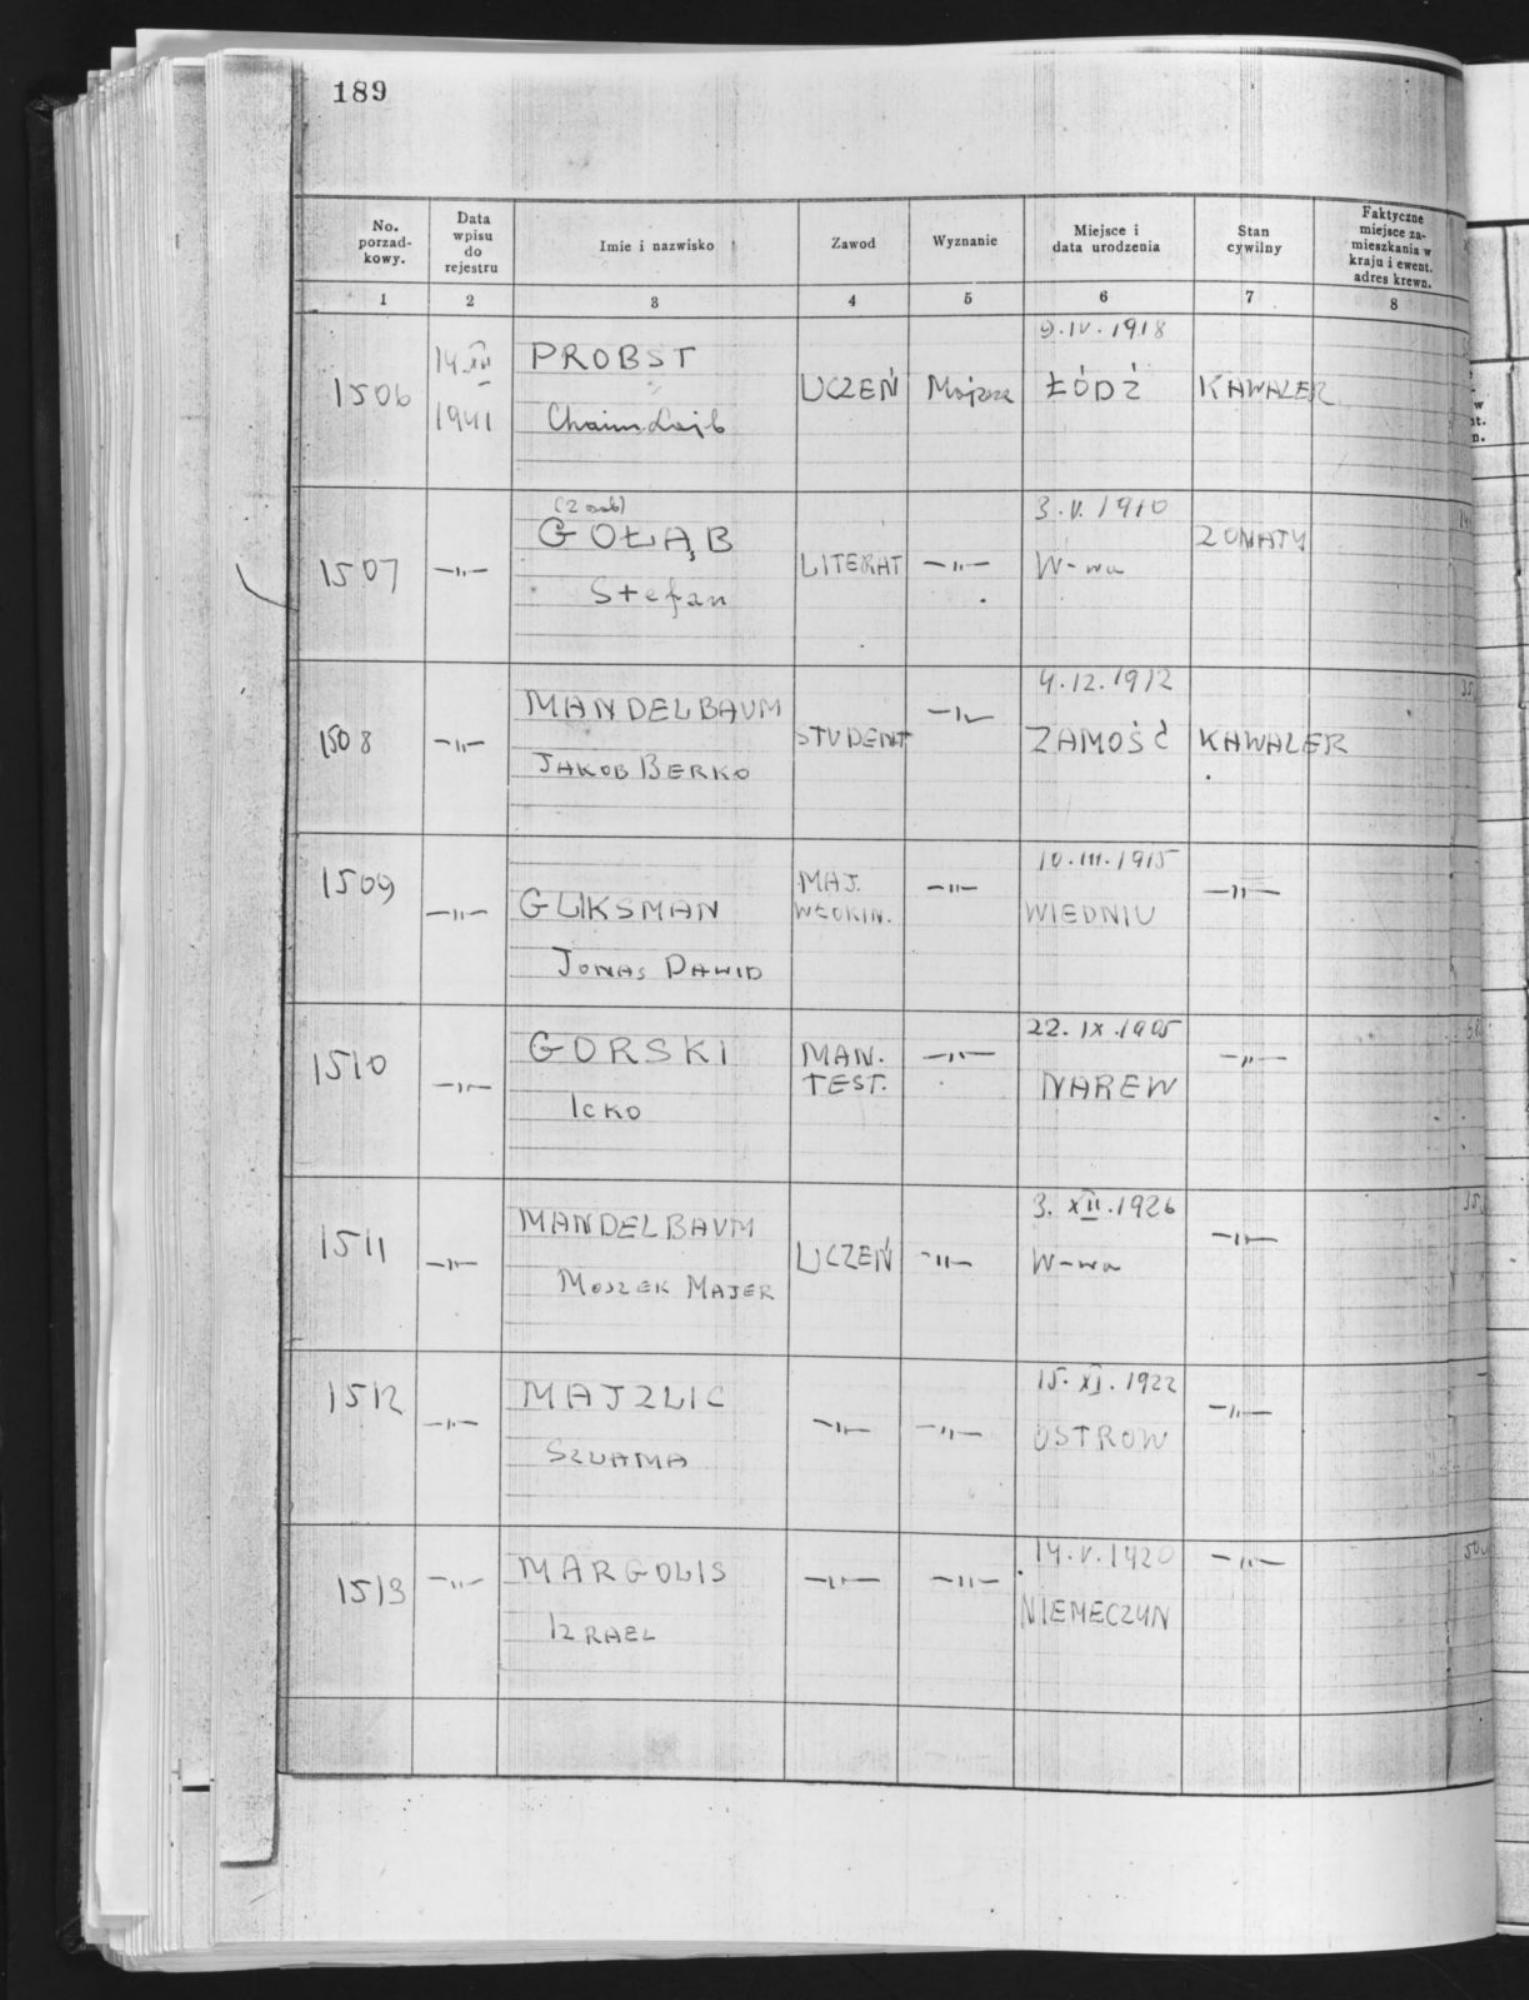 189
No. porzad- kowy.
Data wpisu do rejestru
Imie i nazwisko
Zawod
Wyznanie
Miejsce i data urodzenia
Stan cywilny
Faktyczne miejsce za- mieszkania w kraju i ewent. adres krewn.
1 2 3 4 5 6 7 8
9.IV.1918
14 XII PROBST
1506 UCZEŃ Mojżesz ŁÓDŹ KAWALER
1941 Chaim Lajb
(2 osob) 3.V.1910
GOŁĄB ZONATY
1507 —"— LITERAT —"— W-wa
Stefan
4.12.1912
MANDELBAUM —"—
1508 —"— STUDENT ZAMOŚĆ KAWALER
JAKOB BERKO
10.III.1915
1509 MAJ. —"— —"—
—"— GLIKSMAN WŁOKIN. WIEDNIU
JONAS DAWID
22.IX.1905
GORSKI MAN. —"— —"—
1510 —"— TEST. NAREW
ICKO
3.XII.1926
MANDELBAUM —"—
1511 —"— UCZEŃ —"— W-wa
MOSZEK MAJER
15.XI.1922
1512 MAJZLIC —"—
—"— —"— —"— OSTROW
SZLAMA
14.V.1920 —"—
MARGOLIS
1513 —"— —"— —"— NIEMECZYN
IZRAEL